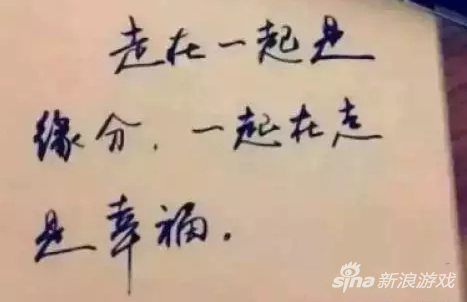 走在一起是
缘分，一起在走
是幸福。
sina新浪游戏